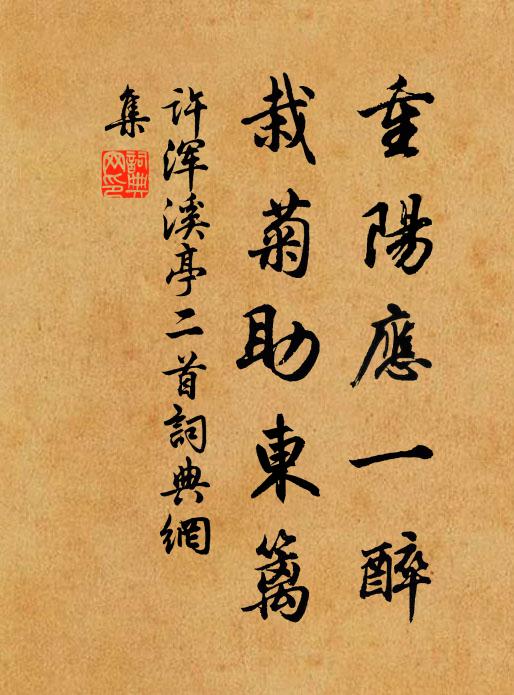 重陽應一醉
栽菊助東籬
许渾溪亭二首詞典網
集
詞典網印